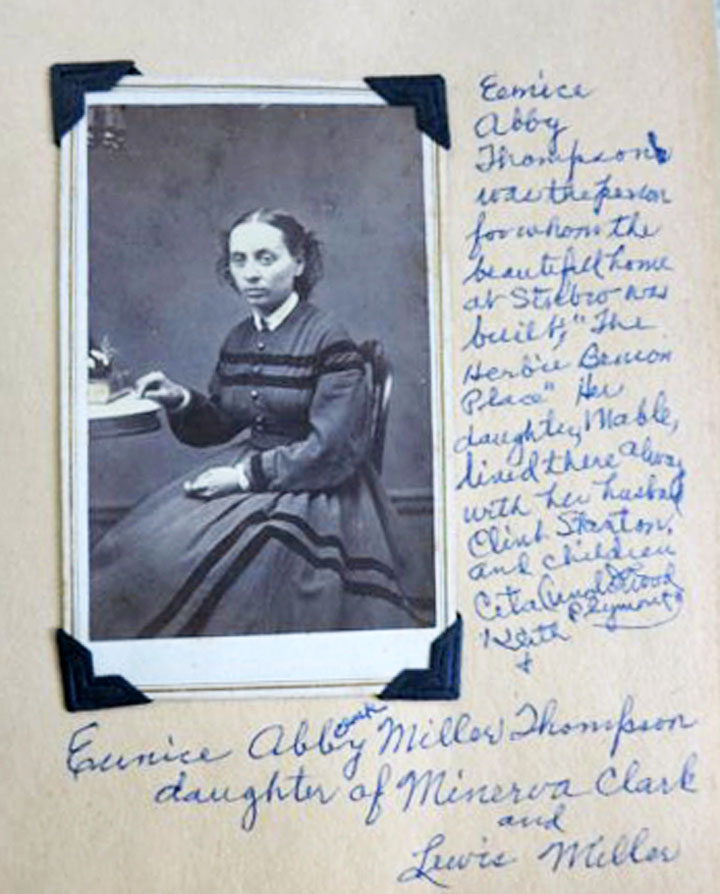 Eunice
Abby
Thompson
was the person
for whom the
beautifull home
at Strebro was
built, "The
Herbie Benson
Place" Her
daughter, Mable,
lived there alway
with her husband
Clint Stanton,
and children
Ceta (Underwood
Plymouth)
Keith
+
Eunice Abby Clark Miller Thompson
daughter of Minerva Clark
and
Lewis Miller